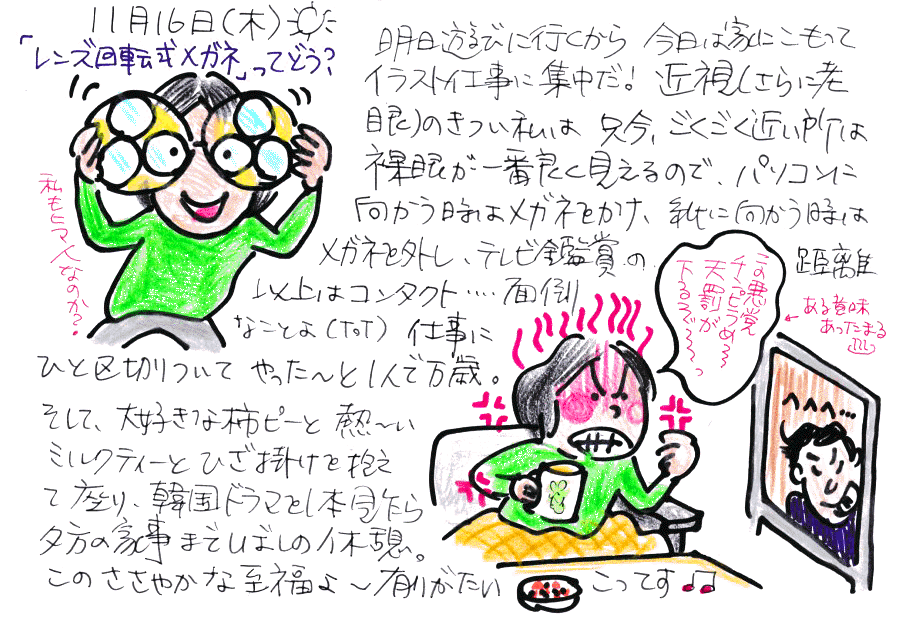 11月16日(木)
「レンズ回転式メガネ」ってどう?
私もヒマ人なのか?
明日遊びに行くから 今日は家にこもって
イラスト仕事に集中だ! 近視(さらに老
眼)のきつい私は 只今、ごくごく近い所は
裸眼が一番良く見えるので、パソコンに
向かう時はメガネをかけ、紙に向かう時は
メガネを外し、テレビ鑑賞の 距離
以上はコンタクト‥‥面倒
なことよ(ToT) 仕事に
ひと区切りついて やった〜と1人で万歳。
そして、大好きな柿ピーと 熱〜い
ミルクティーと ひざ掛けを抱え
て座り、韓国ドラマを1本見たら
夕方の家事までしばしの休憩。
このささやかな至福よ〜有りがたい こってす♫
この悪党
チンピラめ〜
天罰が
下るぞ〜〜っ
←ある意味
あったまる
へへへ…